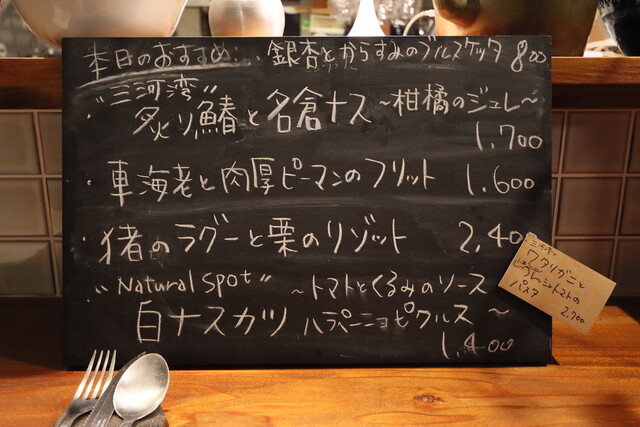 本日のおすすめ・・・銀杏とからすみのブルスケッタ 800
・"三河湾"
炙り鰆と名倉ナス〜柑橘のジュレ〜
1,700
・車海老と肉厚ピーマンのフリット 1,600
・猪のラグーと栗のリゾット 2,40
"Natural Spot" 〜トマトとくるみのソース
白ナスカツ ハラペーニョピクルス〜
1,400
ワタリガニと
フレッシュトマトの
パスタ 2,700